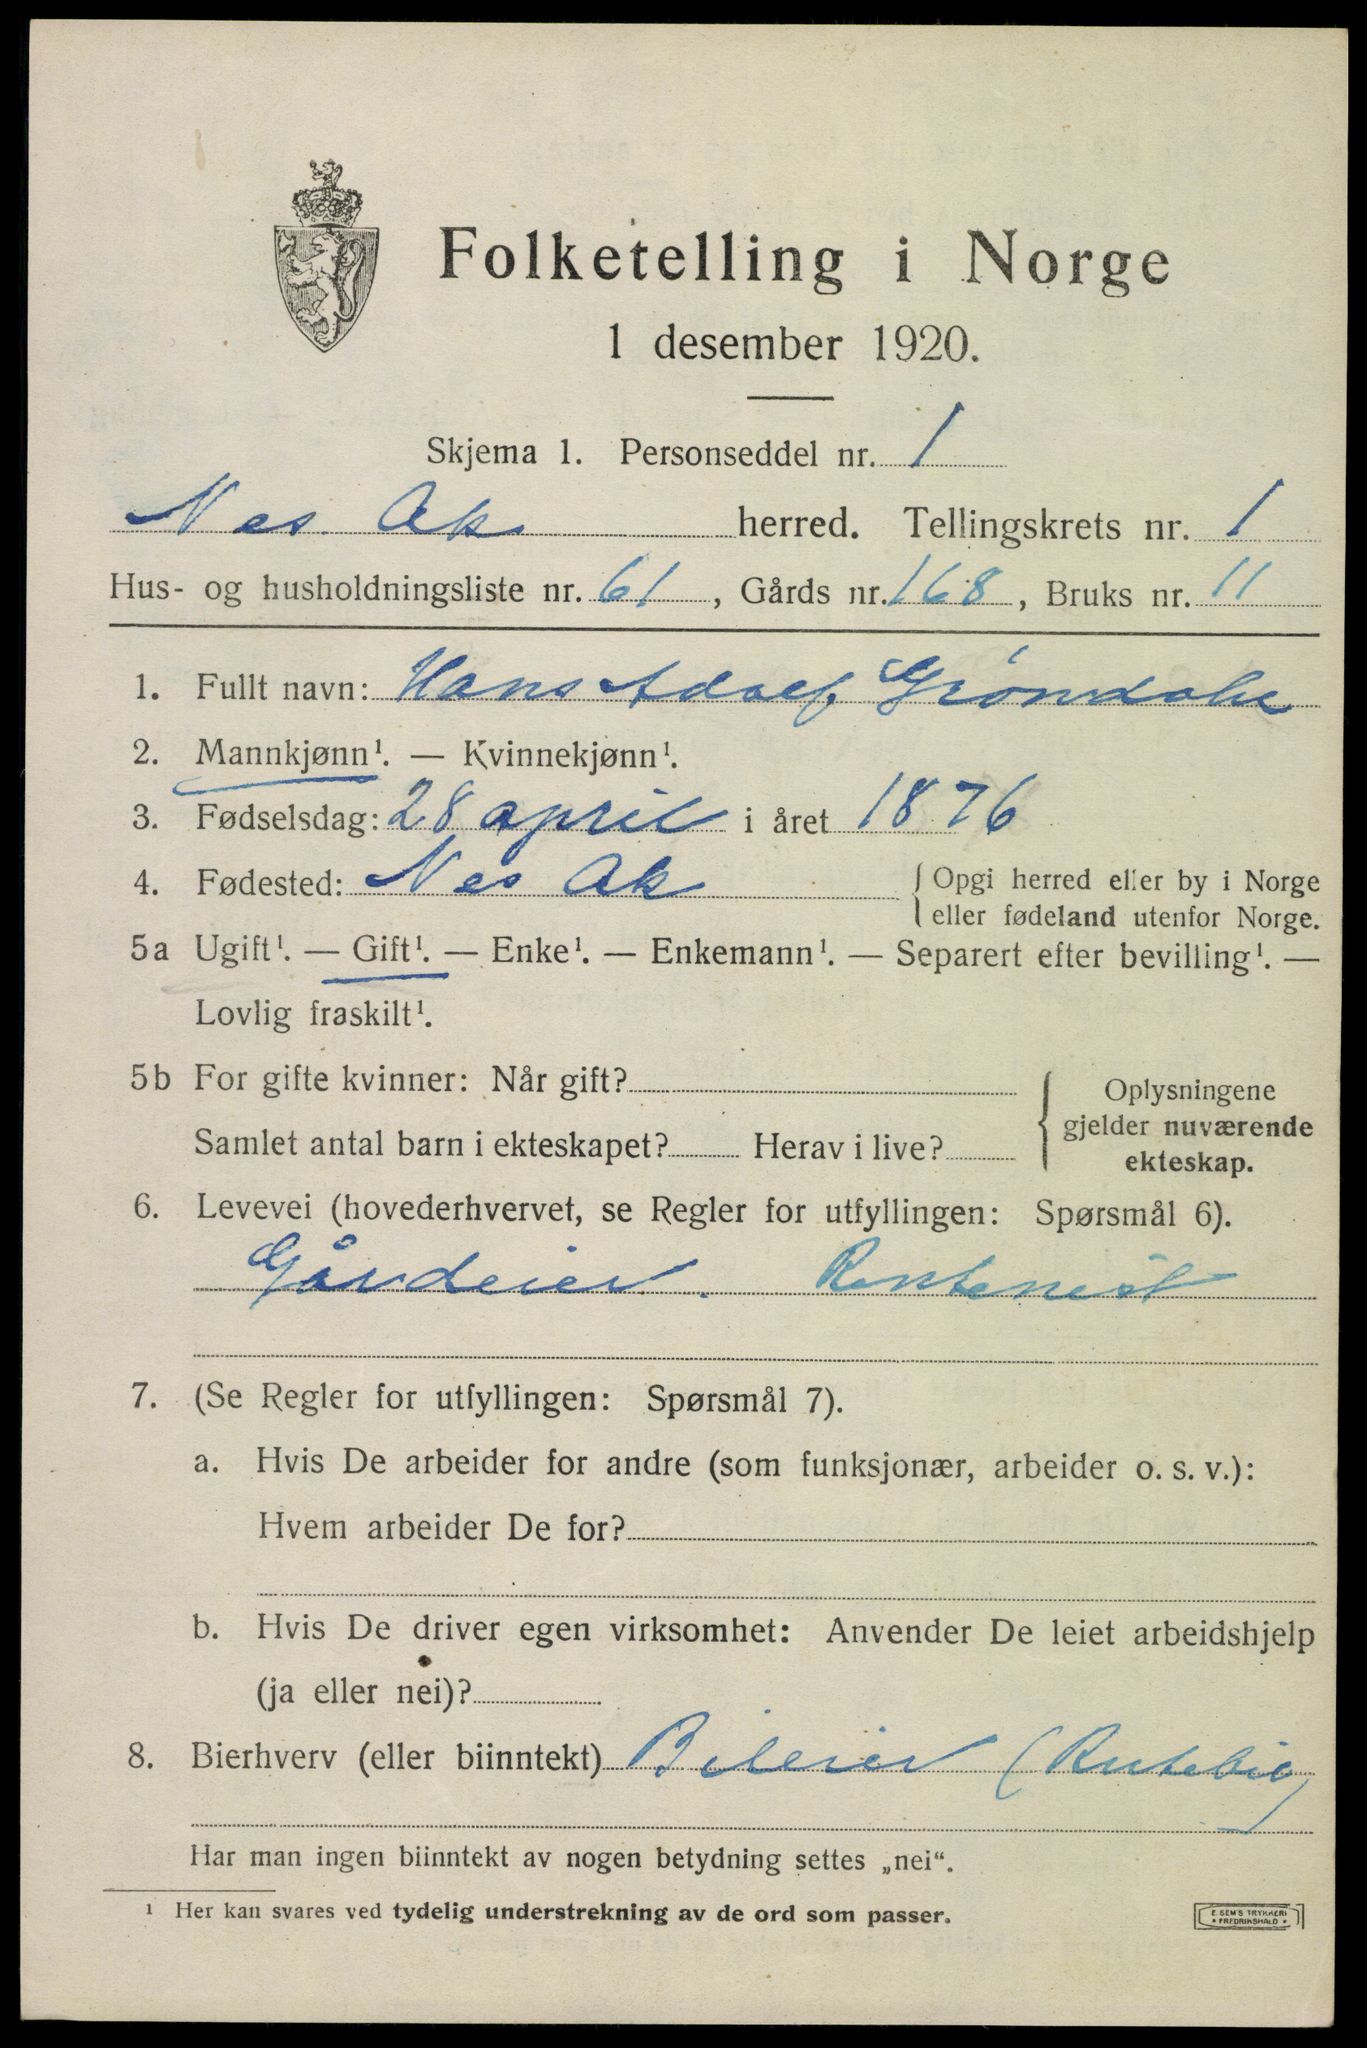 Folketelling i Norge
1 desember 1920.
Skjema 1. Personseddel nr. 1
Nes Ak herred. Tellingskrets nr. 1
Hus- og husholdningsliste nr. 61, Gårds nr. 168, Bruks nr. 11
1. Fullt navn: Hans Adolf Gröndahl
2. Mannkjønn¹. — Kvinnekjønn¹.
3. Fødselsdag: 28 april i året 1876
4. Fødested: Nes Ak { Opgi herred eller by i Norge
eller fødeland utenfor Norge.
5a Ugift¹. — Gift¹. — Enke¹. — Enkemann¹. — Separert efter bevilling¹. —
Lovlig fraskilt¹.
5b For gifte kvinner: Når gift?
Samlet antal barn i ekteskapet? Herav i live?
{ Oplysningene
gjelder nuværende
ekteskap.
6. Levevei (hovederhvervet, se Regler for utfyllingen: Spørsmål 6).
Gårdeier. Rentenist
7. (Se Regler for utfyllingen: Spørsmål 7).
a. Hvis De arbeider for andre (som funksjonær, arbeider o. s. v.):
Hvem arbeider De for?
b. Hvis De driver egen virksomhet: Anvender De leiet arbeidshjelp
(ja eller nei)?
8. Bierhverv (eller biinntekt) Bileier (Rutebil)
Har man ingen biinntekt av nogen betydning settes „nei“.
¹ Her kan svares ved tydelig understrekning av de ord som passer.
E. SEM'S TRYKKERI
* FREDRIKSHALD *